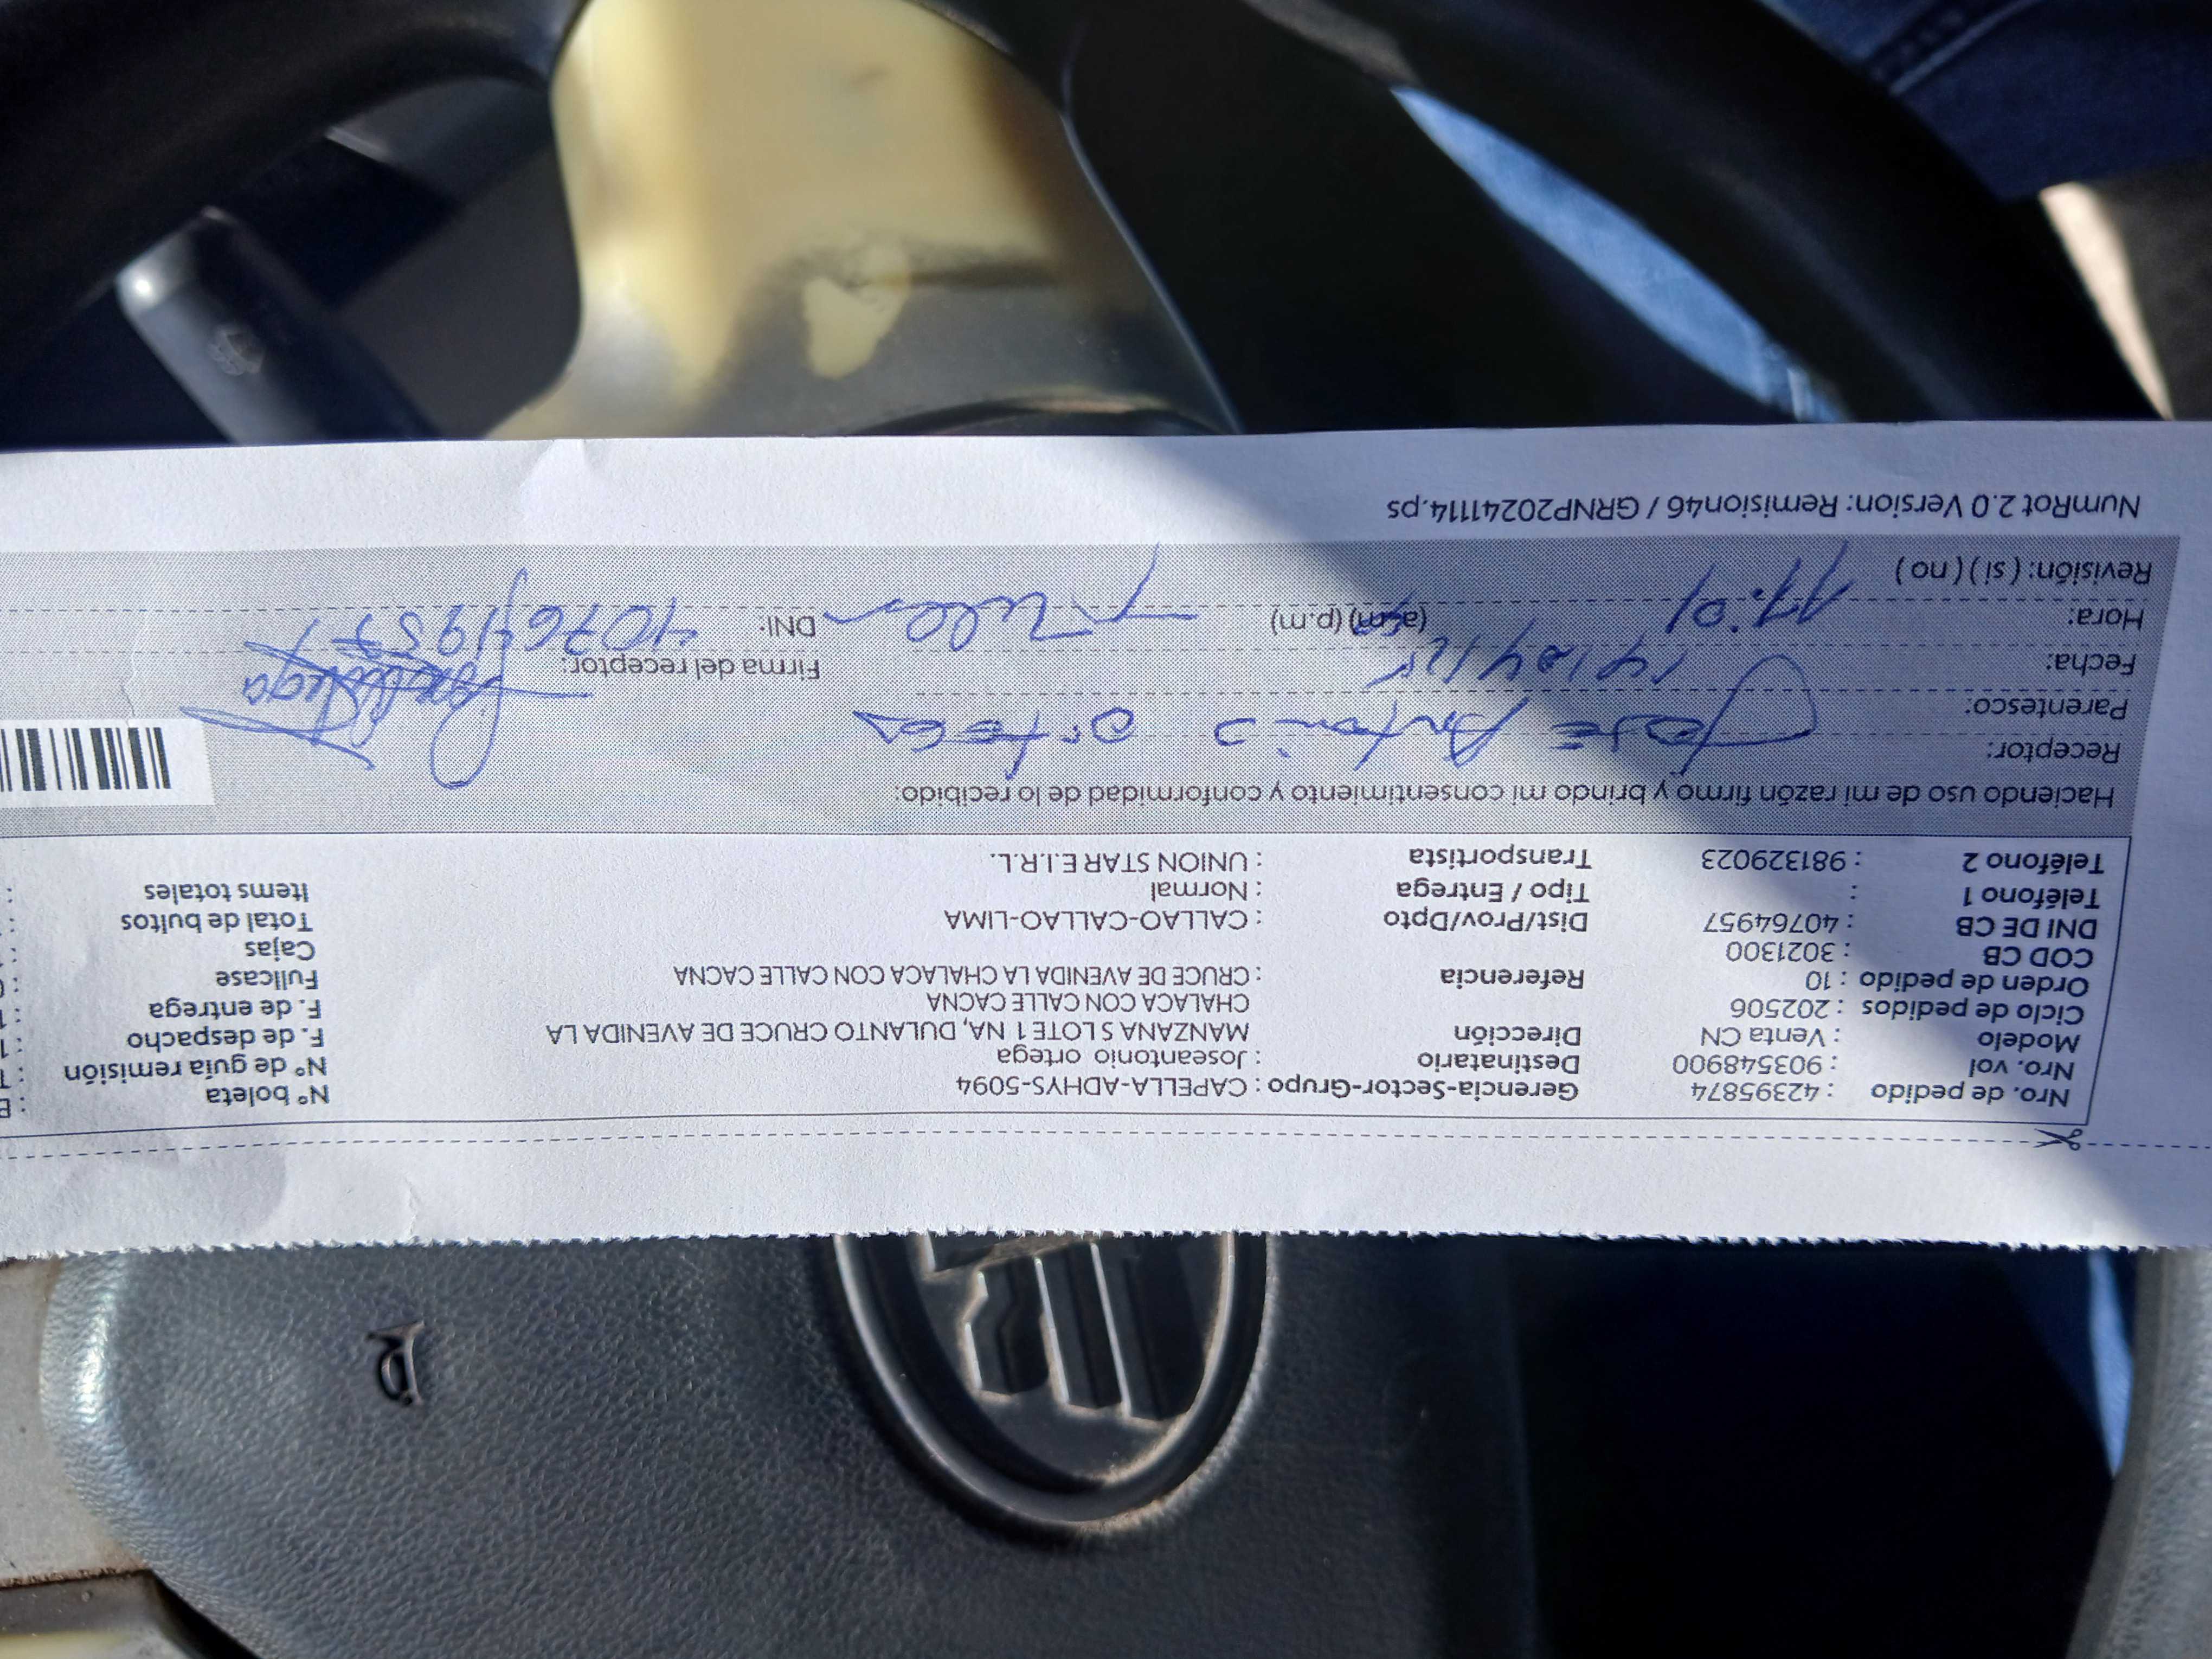 Nro. de pedido : 42395874 Gerencia-Sector-Grupo : CAPELLA-ADHYS-5094 Nº boleta :
Nro. vol : 903548900 Destinatario : Joseantonio ortega Nº de guía remisión :
Modelo : Venta CN Dirección MANZANA S LOTE 1 NA, DULANTO CRUCE DE AVENIDA LA F. de despacho : 1
Ciclo de pedidos : 202506 CHALACA CON CALLE CACNA F. de entrega : 1
Orden de pedido : 10 Referencia : CRUCE DE AVENIDA LA CHALACA CON CALLE CACNA Fullcase :
COD CB : 3021300 Cajas :
DNI DE CB : 40764957 Dist/Prov/Dpto : CALLAO-CALLAO-LIMA Total de bultos :
Teléfono 1 : Tipo / Entrega : Normal Items totales :
Teléfono 2 : 981329023 Transportista : UNION STAR E.I.R.L.
Haciendo uso de mi razón firmo y brindo mi consentimiento y conformidad de lo recibido:
Receptor: José Antonio Ortega
Parentesco:
Fecha: 14/04/25 Firma del receptor:
Hora: 11:01 (a.m) (p.m) DNI: 40764957
Revisión: ( si ) ( no )
NumRot 2.0 Version: Remision46 / GRNP20241114.ps